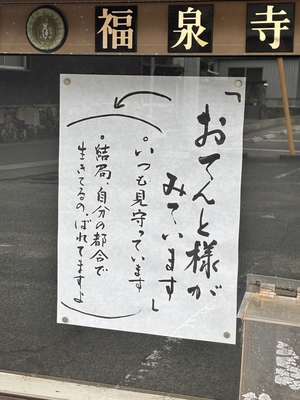 福泉寺
「おてんと様が
みています」
・いつも見守っています
・結局、自分の都合で
生きてるの、ばれてますよ